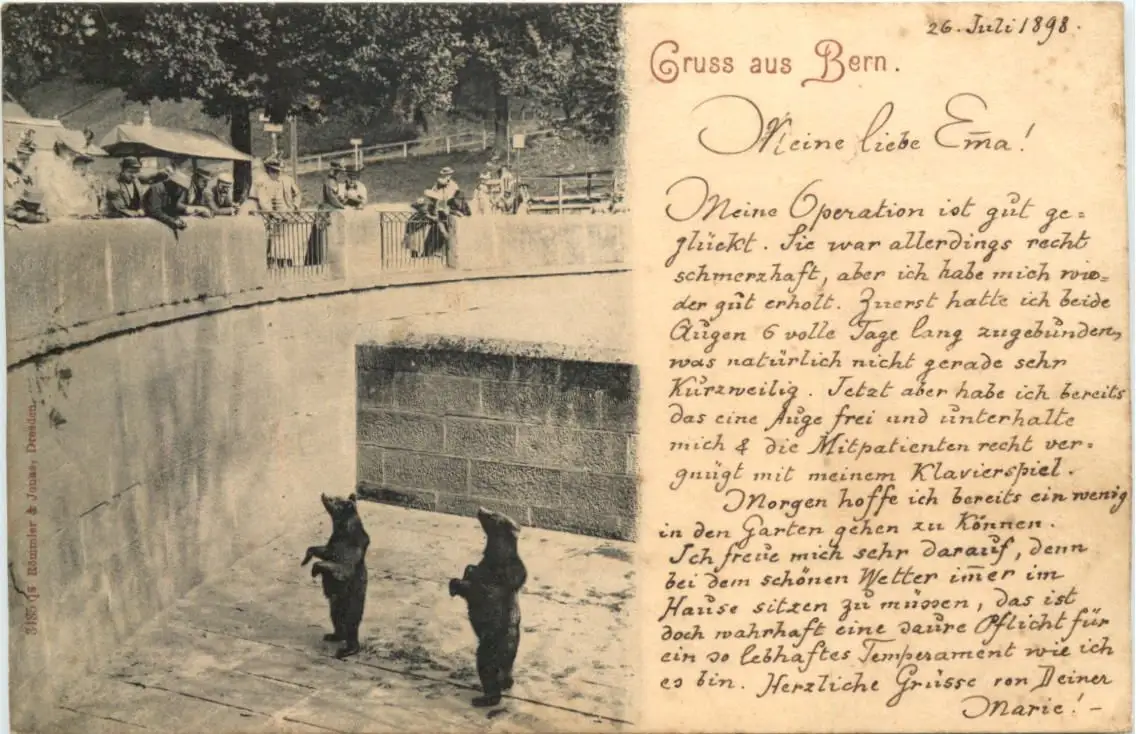 26. Juli 1898.
Gruss aus Bern.
Meine liebe Em̅a!
Meine Operation ist gut ge=
glückt. Sie war allerdings recht
schmerzhaft, aber ich habe mich wie=
der gut erholt. Zuerst hatte ich beide
Augen 6 volle Tage lang zugebunden,
was natürlich nicht gerade sehr
kurzweilig. Jetzt aber habe ich bereits
das eine Auge frei und unterhalte
mich & die Mitpatienten recht ver=
gnügt mit meinem Klavierspiel.
Morgen hoffe ich bereits ein wenig
in den Garten gehen zu können.
Ich freue mich sehr darauf, denn
bei dem schönen Wetter im̅er im
Hause sitzen zu müssen, das ist
doch wahrhaft eine saure Pflicht für
ein so lebhaftes Temperament wie ich
es bin. Herzliche Grüsse von Deiner
Marie! -
Römmler & Jonas, Dresden.